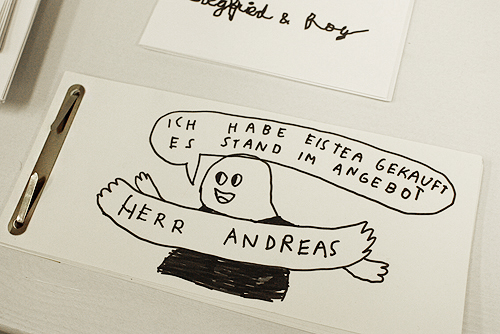 Siegfried & Roy
ICH HABE EISTEA GEKAUFT
ES STAND IM ANGEBOT
HERR ANDREAS